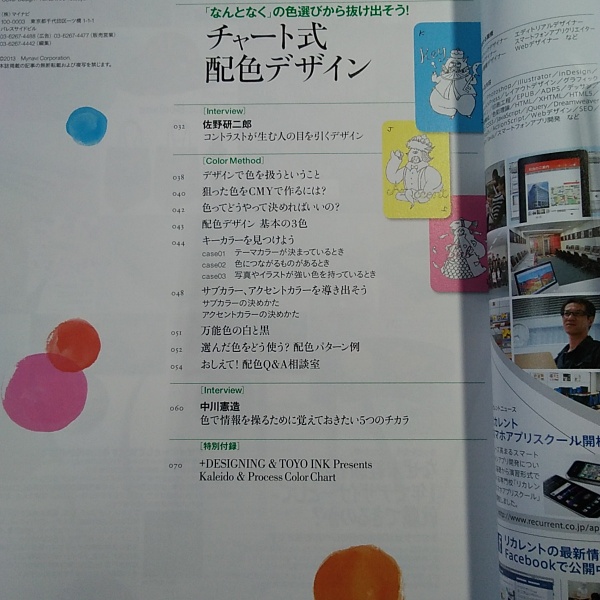 (株)マイナビ
100-0003 東京都千代田区一ツ橋1-1-1
パレスサイドビル
03-6267-4477(販売営業)
(編集)
©2013 Mynavi Corporation.
「なんとなく」の色選びから抜け出そう!
チャート式
配色デザイン
[Interview]
032 佐野研二郎
コントラストが生む人の目を引くデザイン
[Color Method]
038 デザインで色を扱うということ
040 狙った色をCMYで作るには?
042 色ってどうやって決めればいいの?
043 配色デザイン 基本の3色
044 キーカラーを見つけよう
case01 テーマカラーが決まっているとき
case02 色につながるものがあるとき
case03 写真やイラストが強い色を持っているとき
048 サブカラー、アクセントカラーを導き出そう
サブカラーの決めかた
アクセントカラーの決めかた
051 万能色の白と黒
052 選んだ色をどう使う? 配色パターン例
054 おしえて! 配色Q&A相談室
[Interview]
060 中川憲造
色で情報を操るために覚えておきたい5つのチカラ
[特別付録]
070 +DESIGNING & TOYO INK Presents
Kaleido & Process Color Chart
K
J
エディトリアルデザイナー
スマートフォンアプリクリエイター
Webデザイナー など
/Illustrator/InDesign/
レイアウトデザイン/グラフィック
/EPUB/ADPS/デッサン/
/HTML/XHTML/HTML5/
/jQuery/Dreamweaver
/Webデザイン/SEO/
/スマートフォンアプリ開発 など
ニュース
カレント
マホアプリスクール開校
http://www.recurrent.co.jp/ap
リカレントの最新情
Facebookで公開中